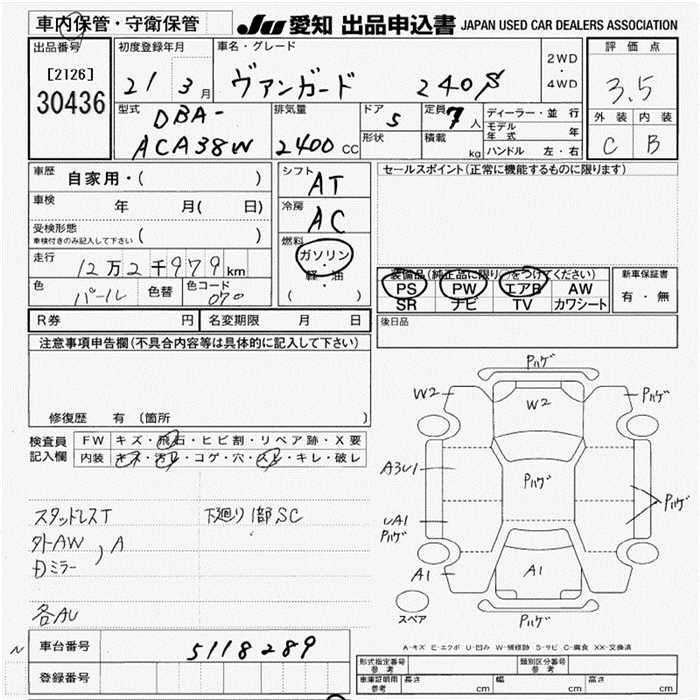 車内保管・守衛保管
JU 愛知 出品申込書 JAPAN USED CAR DEALERS ASSOCIATION
出品番号
[2126]
30436
初度登録年月
21 3月
車名・グレード
ヴァンガード 240S
2WD
・
4WD
評価点
3.5
外装 内装
C B
型式
DBA-
ACA38W
排気量
2400 CC
ドア
5
形状
定員
7人
積載
kg
ディーラー・並行
モデル年式 年
ハンドル 左・右
車歴
自家用・( )
車検
年 月( 日)
受検形態
車検付きのみ記入して下さい ( )
走行
12万2千979km
色
パール
色替
色コード
070
シフト
AT
冷房
AC
燃料
ガソリン
・
軽・油
( )
セールスポイント(正常に機能するものに限ります)
装備品(純正品に限り○をつけてください)
PS PW エアB AW
SR ナビ TV カワシート
新車保証書
有・無
後日品
R券 円 名変期限 月 日
注意事項申告欄(不具合内容等は具体的に記入して下さい)
修復歴 有 (箇所 )
検査員
記入欄
FW キズ・飛石・ヒビ割・リペア跡・X要
内装 キズ・汚レ・コゲ・穴・スレ・キレ・破レ
スタッドレスT
外AW , A
Dミラー
各AU
下廻り1部SC
Pハゲ
W2
W2
Pハゲ
A3U1
Pハゲ
Pハゲ
UA1
Pハゲ
A1
A1
Pハゲ
スペア
A-キズ E-エクボ U-凹み W-補修跡 S-サビ C-腐食 XX-交換済
N
車台番号
5118289
登録番号
形式指定番号
参考
類別区分番号
参考
車庫証明用
参考
長さ cm 幅 cm 高さ cm